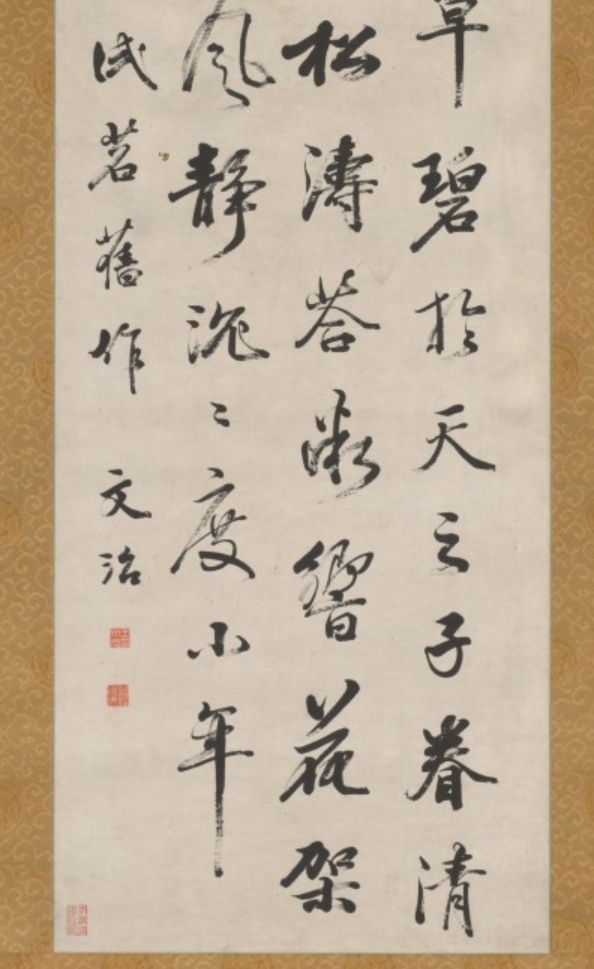 草碧於天之子眷清
松濤荅漱響花架
風靜沉〻度小年
試茗舊作 文治